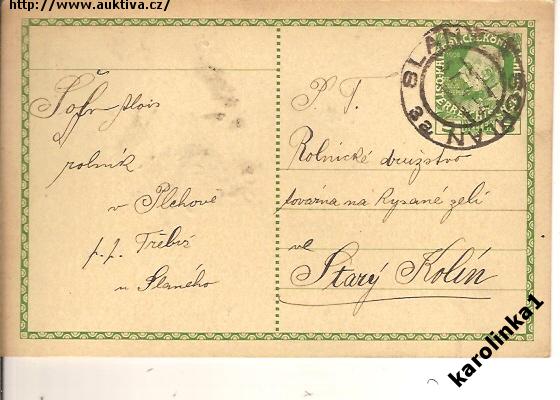 http://www.auktiva.cz/
Šofr Alois
rolník
v Plchově
p. p. Třebíz
u Slaného
P. T.
Rolnické družstvo
továrna na kysané zelí
ve
Starý Kolín
SLANÝ
SCHLAN
3a
karolinka1